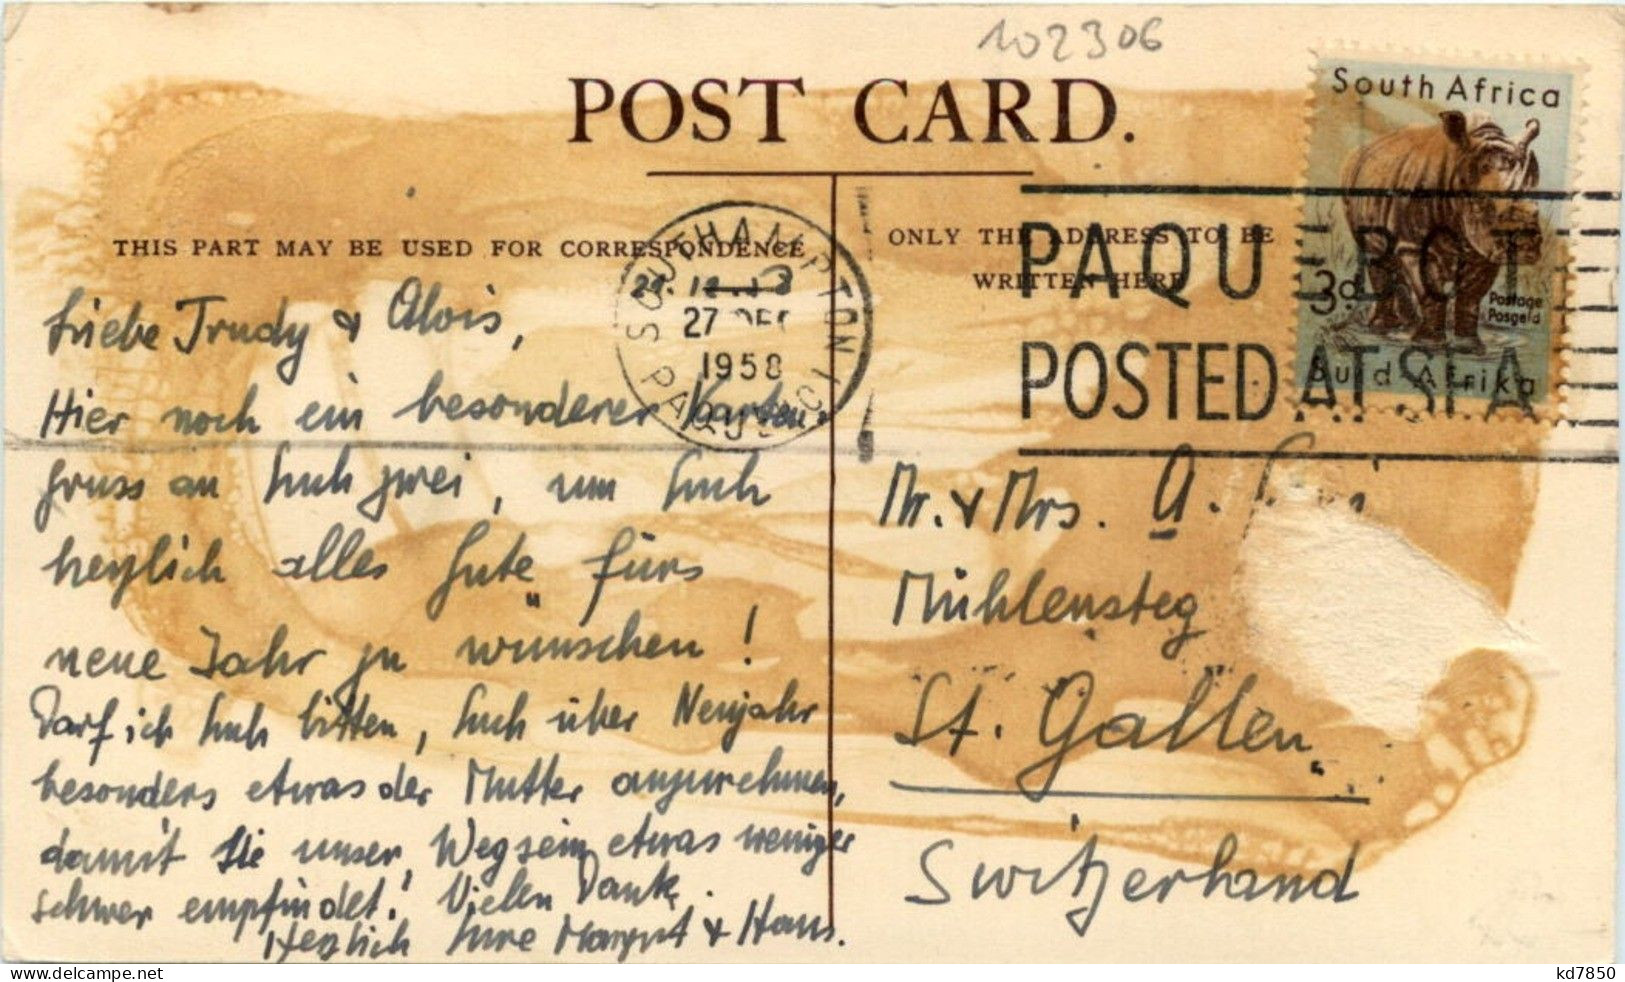 102306
POST CARD.
THIS PART MAY BE USED FOR CORRESPONDENCE
ONLY THE ADDRESS TO BE
WRITTEN HERE
South Africa
3d
Postage
Posgeld
Suid Afrika
SOUTHAMPTON
27 DEC
1958
PAQUEBOT
POSTED AT SEA
Liebe Trudy & Alois,
Hier noch ein besonderer Karten-
gruss an Euch zwei, um Euch
herzlich alles Gute fürs
neue Jahr zu wünschen!
Darf ich Euch bitten, Euch über Neujahr
besonders etwas der Mutter anzunehmen,
damit Sie unser Wegsein etwas weniger
schwer empfindet! Vielen Dank.
Herzlich Eure Margrit & Hans.
Mr. & Mrs. A.
Mühlensteg
St. Gallen
Switzerland
www.delcampe.net
kd7850